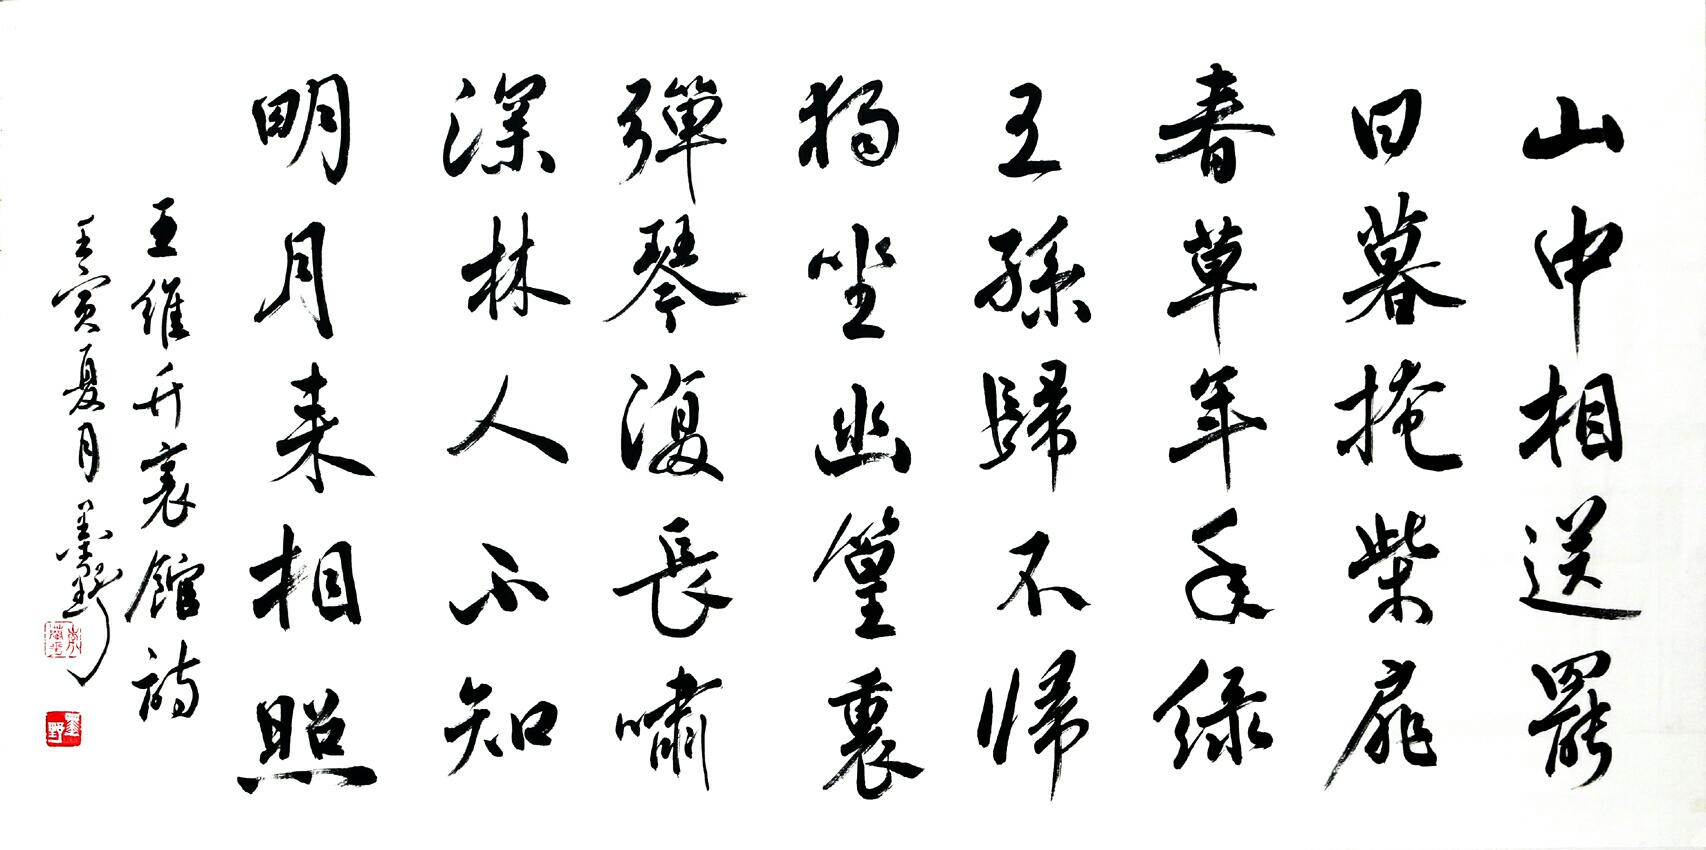 山中相送罷
日暮掩柴扉
春草年年綠
王孫歸不歸
獨坐幽篁裏
彈琴復長嘯
深林人不知
明月来相照
王維竹裏館詩
壬寅夏月墨野
墨野